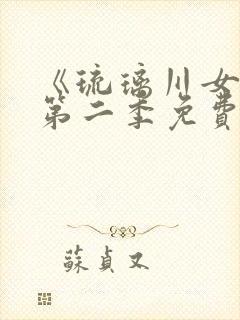 《琉璃川女
第二季免費
蘇貞又